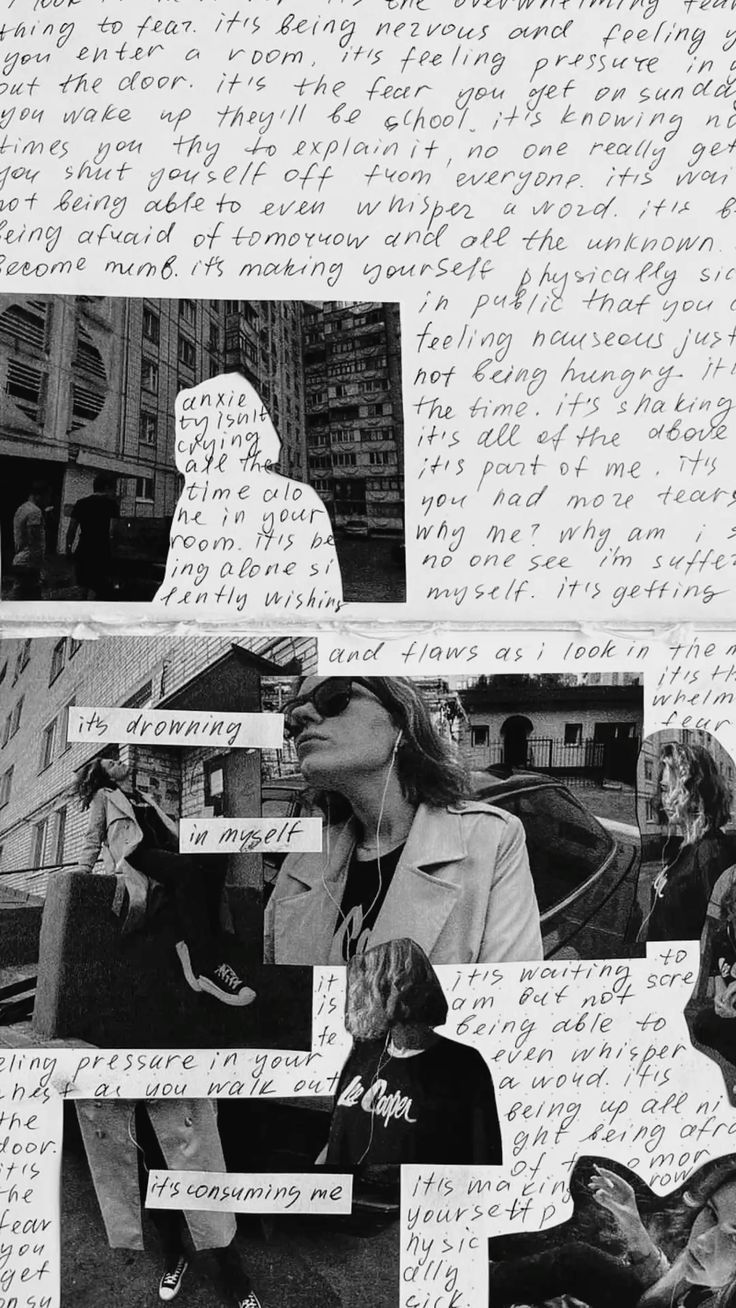 look
the overwhelming fear
thing to fear. it's being nervous and feeling
you enter a room, it's feeling pressure in
out the door. it's the fear you get on sunday
you wake up they'll be school. it's knowing
times you thy to explain it, no one really get
you shut youself off fuom everyone. it's wai
not being able to even whisper a word. it's
being afuaid of tomouuow and all the unknown.
become numb. it's making yourself physically sic
in public that you
feeling nauseous just
not being hungry. it
the time. it's shaking
it's all of the above
it's part of me. it's
you had more tears
why me? why am i s
no one see i'm suffe
myself. it's getting
anxie
ty isn't
crying
all the
time alo
ne in your
room. it's be
ing alone si
lently wishing
and flaws as i look in the m
it's th
whelm
fear
it's drowning
in myself
it
is
te
it's waiting to
scre
am but not
being able to
even whisper
a woud. it's
being up all ni
ght being afra
of t omor
row
eling pressure in your
hest as you walk out
the
door.
it's
the
fear
you
get
on su
Lee Cooper
it's consuming me
it's making
yourself p
hysic
ally
sick.